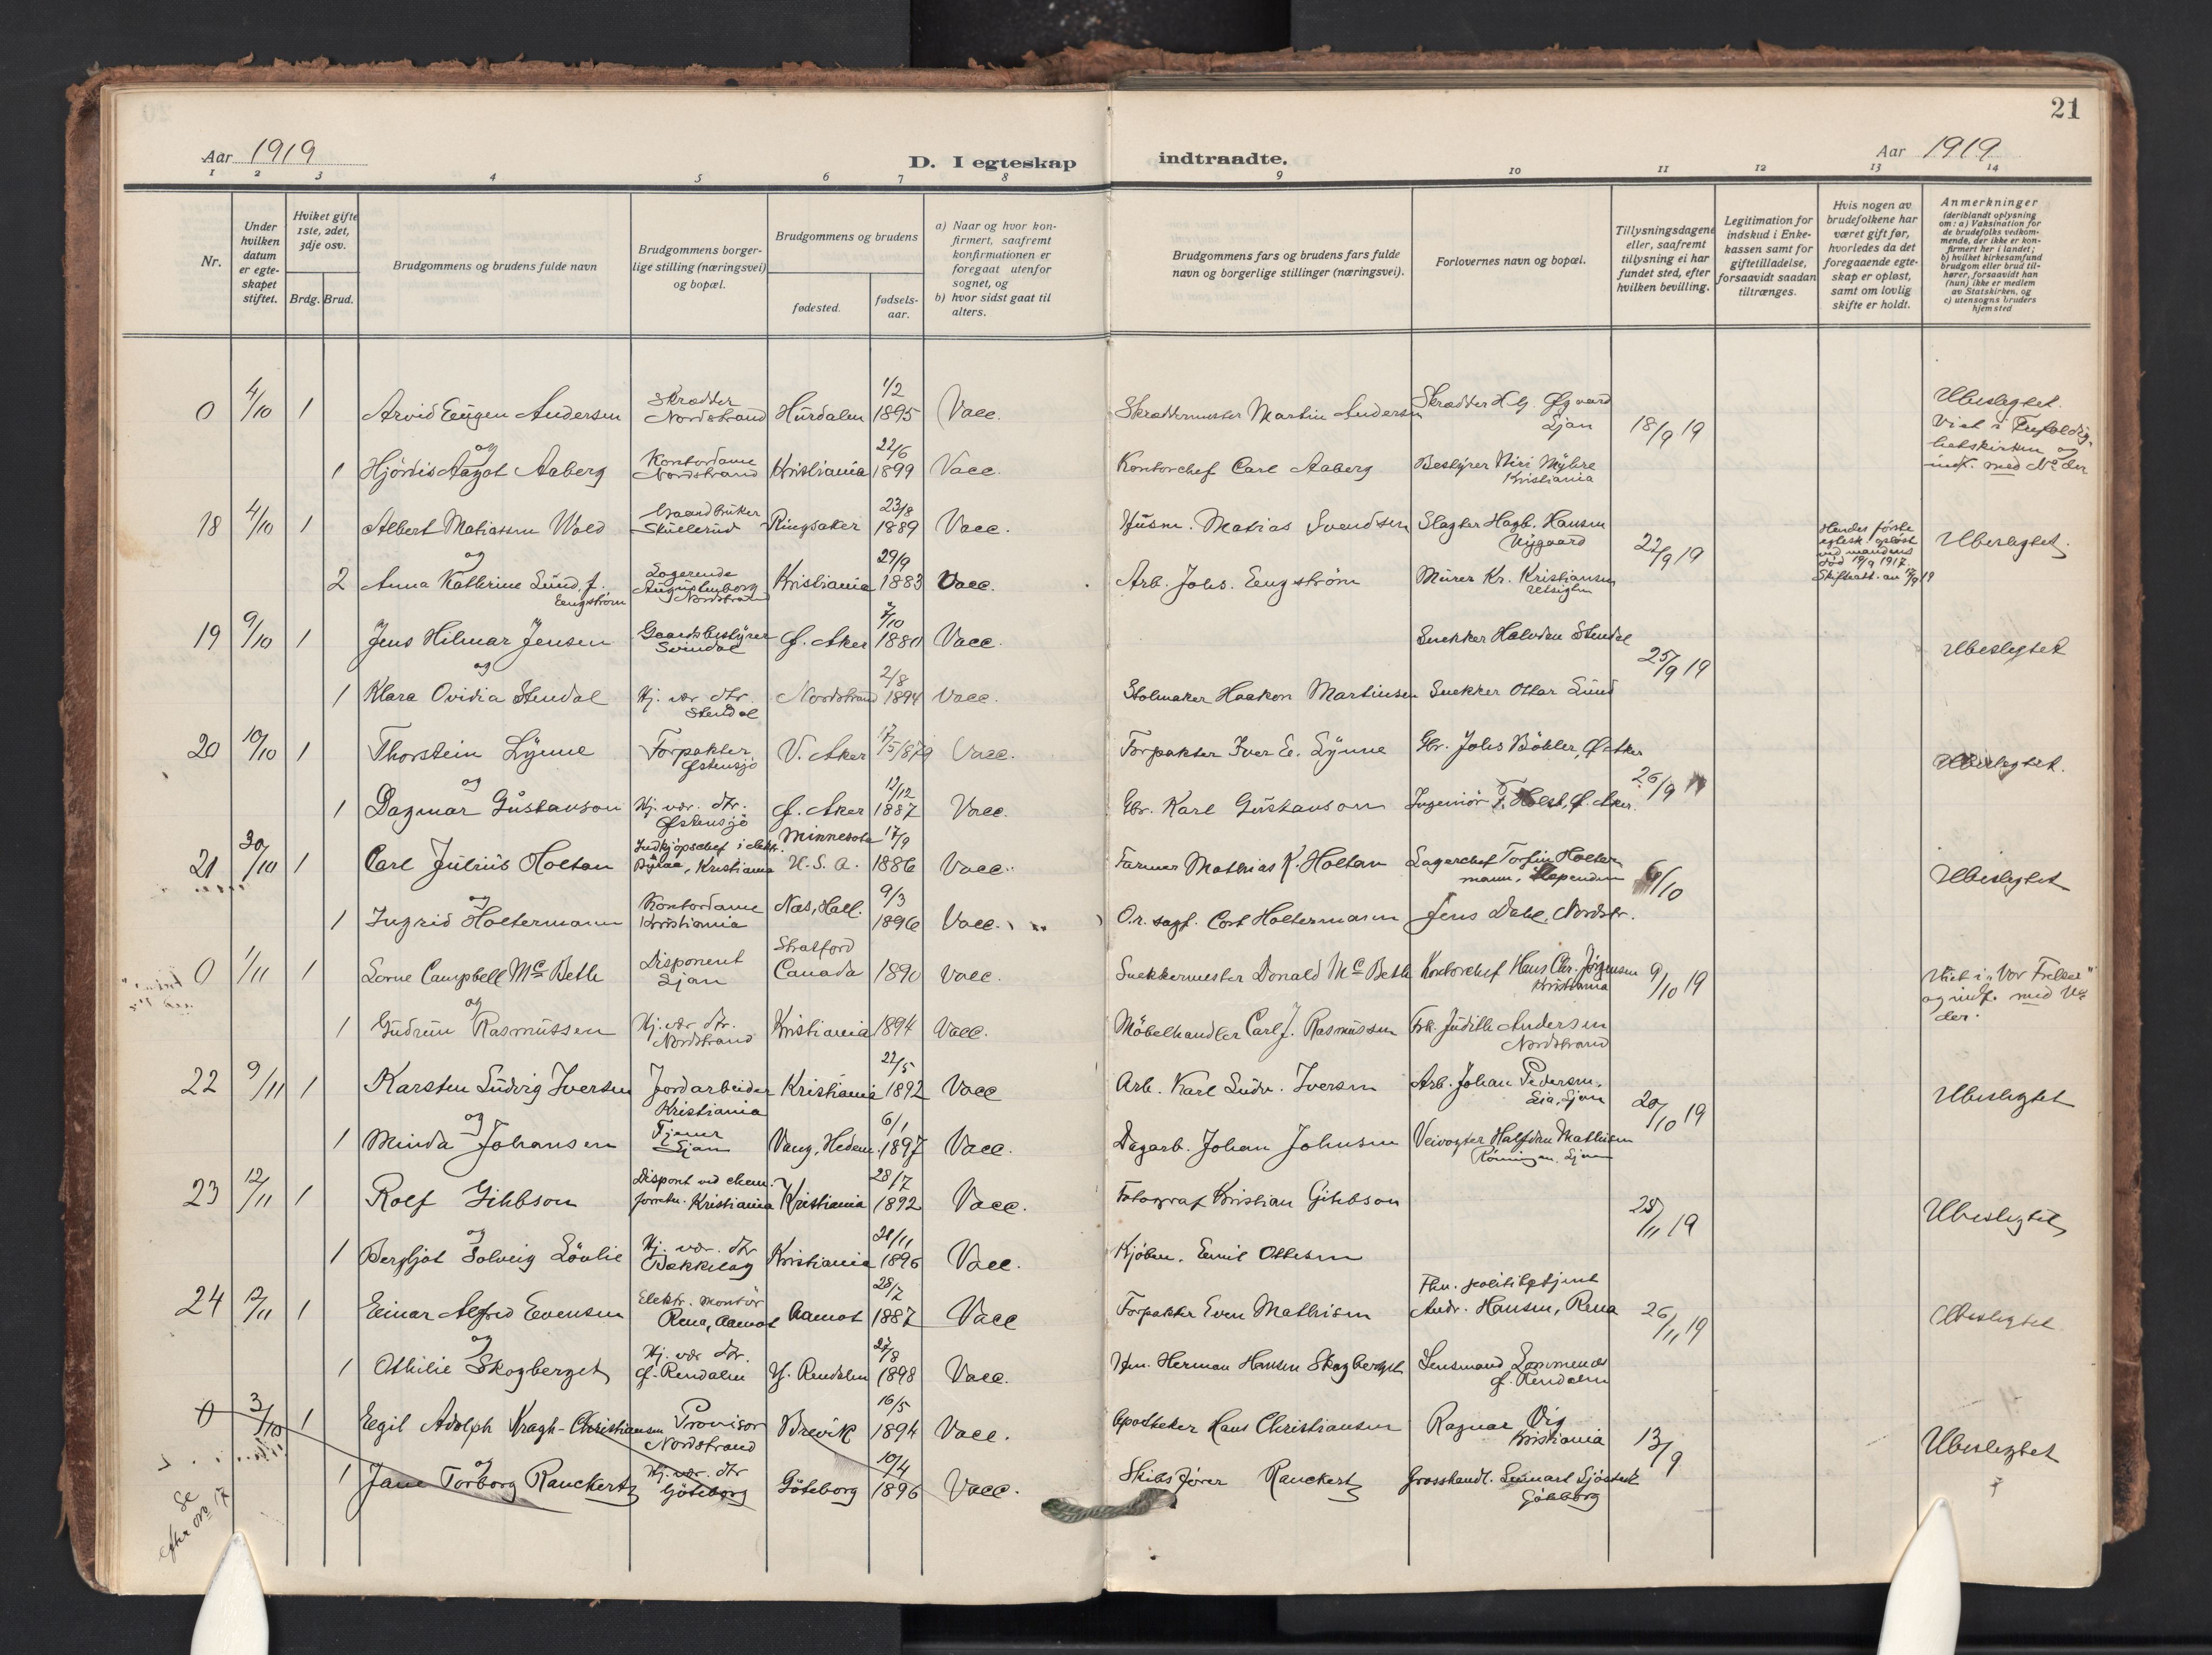 21
Aar 1919
D. I egteskap indtraadte.
Aar 1919
1 2 3 4 5 6 7 8 9 10 11 12 13 14
Nr.
Under hvilken datum er egteskapet stiftet.
Hviket gifte 1ste, 2det, 3dje osv.
Brdg. Brud.
Brudgommens og brudens fulde navn
Brudgommens borgerlige stilling (næringsvei) og bopæl.
Brudgommens og brudens
fødested.
fødselsaar.
a) Naar og hvor konfirmert, saafremt konfirmationen er foregaat utenfor sognet, og
b) hvor sidst gaat til alters.
Brudgommens fars og brudens fars fulde navn og borgerlige stillinger (næringsvei).
Forlovernes navn og bopæl.
Tillysningsdagene eller, saafremt tillysning ei har fundet sted, efter hvilken bevilling.
Legitimation for indskud i Enkekassen samt for giftetilladelse, forsaavidt saadan tiltrænges.
Hvis nogen av brudefolkene har været gift før, hvorledes da det foregaaende egteskap er opløst, samt om lovlig skifte er holdt.
Anmerkninger (deriblandt oplysning om: a) Vaksination for de brudefolks vedkommende, der ikke er konfirmert her i landet; b) hvilket kirkesamfund brudgom eller brud tilhører, forsaavidt han (hun) ikke er medlem av Statskirken, og c) utensogns bruders hjemsted
0 4/10 1 Arvid Eugen Andersen Skrædder Nordstrand Hurdalen 1/2 1895 Vacc. Skræddermester Martin Andersen Skrædder Ljan 18/9 19 Ubeslegtet. Viet i Trefoldighetskirken og indf. med No der
og
1 Hjördis Aagot Aaberg Kontordame Nordstrand Kristiania 22/6 1899 Vacc. Kontorchef Carl Aaberg Bestyrer Myhre Kristiania
18 4/10 1 Albert Matiassen Wold Gaardbruker Skullerud Ringsaker 23/8 1889 Vacc. Husm. Matias Svendsen Slagter Hagb. Hansen Nygaard 22/9 19 Hendes første egtesk. opløst ved mandens død 19/9 1917. Skifteatt. av 17/9 19 Ubeslegtet.
og
2 Anna Kathrine Lund, f. Engstrøm Logerende Augustenborg Nordstrand Kristiania 29/9 1883 Vacc. Arb. Johs. Engström Murer Kr. Kristiansen
19 9/10 1 Jens Hilmar Jensen Gaardsbestyrer Svindal Ø. Aker 7/10 1880 Vacc. Snekker Halvdan Stendal 25/9 19 Ubeslegtet
og
1 Klara Ovidia Stendal Hj. vær. dtr. Stendal Nordstrand 2/8 1894 Vacc. Stolmaker Haakon Martinsen Snekker Ottar Lund
20 10/10 1 Thorstein Lynne Forpakter Østensjö V. Aker 17/5 1879 Vacc. Forpakter Iver E. Lynne Gbr. Johs Böhler, Ø. Aker 26/9 19 Ubeslegtet.
og
1 Dagmar Gustavson Hj. vær. dtr. Østensjö Ø. Aker 12/12 1887 Vacc. Gbr. Karl Gustavson Ingeniör T. Holst, Ø. Aker.
21 30/10 1 Carl Julius Holtan Indkjöpschef i elektr. Byraa, Kristiania Minnesota U.S.A. 17/9 1886 Vacc. Farmer Mathias K. Holtan Lagerchef Torfin Holtermann, Slependen 6/10 Ubeslegtet
og
1 Ingrid Holtermann Kontordame Kristiania Næs, Hall. 9/3 1896 Vacc. O.r. sagf. Cort Holtermann Jens Dahl, Nordstr.
0 1/11 1 Lorne Campbell Mc Beth Disponent Ljan Stratford Canada 1890 Vacc. Snekkermester Donald Mc Beth Kontorchef Hans Chr. Jörgensen Kristiania 9/10 19 Viet i "Vor Frelser" og indf. med No der.
og
1 Gudrun Rasmussen Hj. vær. dtr. Nordstrand Kristiania 1894 Vacc. Möbelhandler Carl J. Rasmussen Frk. Judith Andersen Nordstrand
22 9/11 1 Karsten Ludvig Iversen Jordarbeider Kristiania Kristiania 22/5 1892 Vacc Arb. Karl Ludv. Iversen Arb. Johan Pedersen, Lia, Ljan 20/10 19 Ubeslegtet
og
1 Minda Johansen Tjener Ljan Vang, Hedem. 6/1 1897 Vacc. Dagarb. Johan Johnsen Veivogter Halfdan Mathisen Ljan
23 12/11 1 Rolf Gihbson Dispont ved chem. Kristiania Kristiania 28/7 1892 Vacc. Fotograf Kristian Gihbson 25/11 19 Ubeslegtet
og
1 Bergljot Solveig Lövlie Hj. vær. dtr Bækkelag Kristiania 21/11 1896 Vacc. Kjöbm. Emil Ottesen
24 12/11 1 Einar Alfred Evensen Elektr. montör Rena, Aamot Aamot 28/7 1887 Vacc Forpakter Even Mathisen Fhv. politibetjent Andr. Hansen, Rena 26/11 19 Ubeslegtet
og
1 Othilie Skogberget Hj. vær dtr. Ø. Rendalen Y. Rendalen 27/8 1898 Vacc. Herman Hansen Skogberget Lensmand Ø. Rendalen
0 3/10 1 Egil Adolph Kragh-Christiansen Provisor Nordstrand Brevik 16/5 1894 Vacc. Apotheker Hans Christiansen Ragnar Vig Kristiania 13/9 Ubeslegtet
og
1 Jane Torborg Ranckert Hj. vær. dtr Göteborg Göteborg 10/4 1896 Vacc. Skibsfører Ranckert Grosshandl. Lennart Göteborg
Se efter No 17